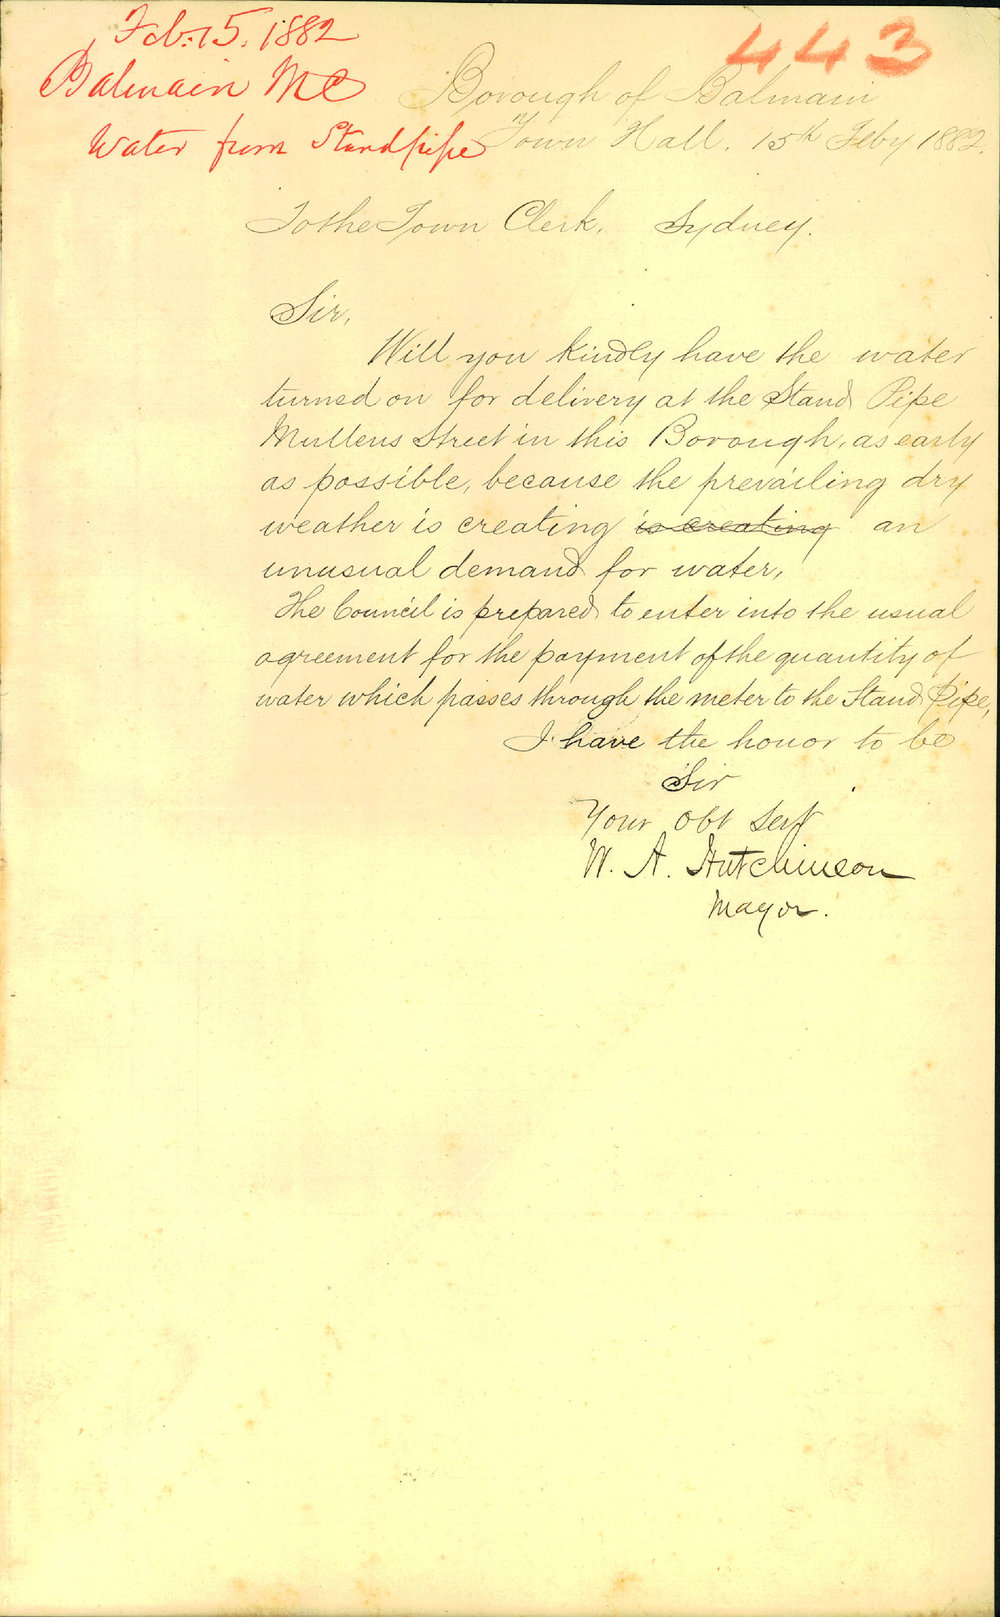 Feb: 15. 1882
Balmain MC
Water from Standpipe
443
Borough of Balmain
Town Hall. 15th Feby 1882.
To the Town Clerk, Sydney.
Sir,
Will you kindly have the water
turned on for delivery at the Stand Pipe
Mullens Street in this Borough, as early
as possible, because the prevailing dry
weather is creating is creating an
unusual demand for water,
The Council is prepared to enter into the usual
agreement for the payment of the quantity of
water which passes through the meter to the Stand Pipe,
I have the honor to be
Sir
Your Obt Servt
W. A. Hutchinson
Mayor.